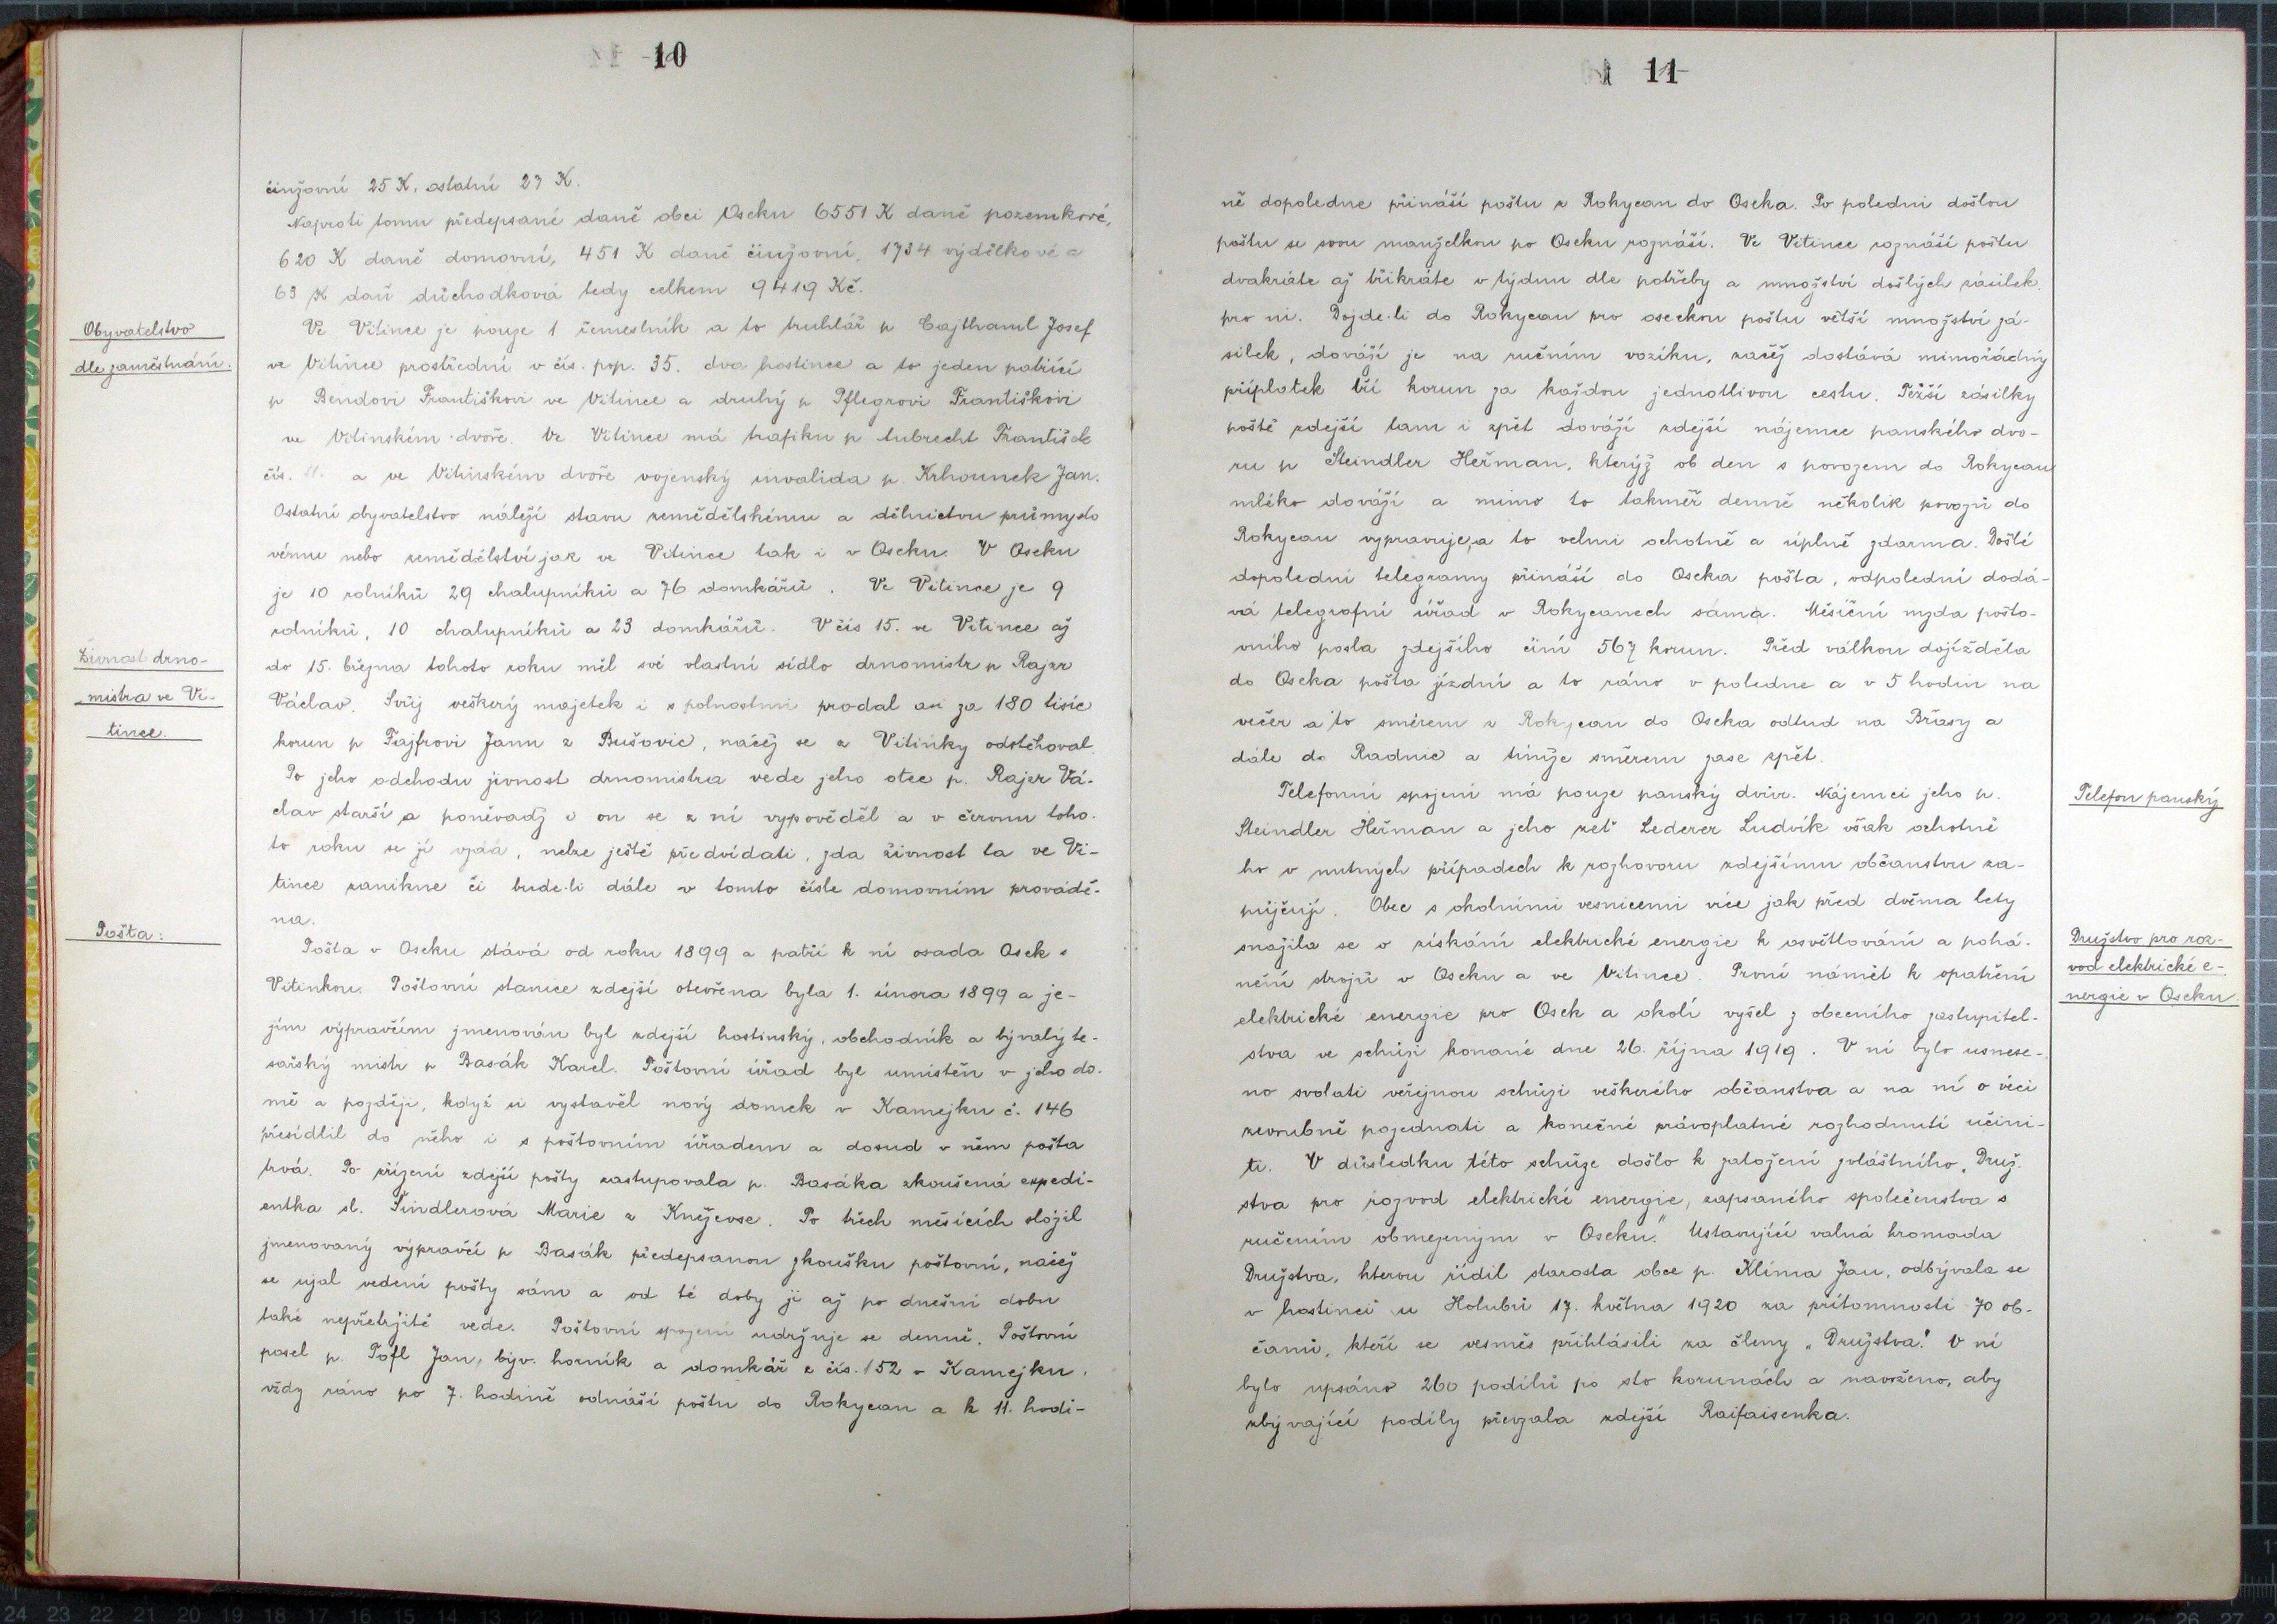 10
činžovní 25 K, ostatní 27 K.
Naproti tomu předepsané daně obci Oseku 6551 K daně pozemkové,
620 K daně domovní, 451 K daně činžovní, 1734 výdělkové a
63 K daň důchodková tedy celkem 9419 Kč.
Obyvatelstvo
dle zaměstnání.
Ve Vitince je pouze 1 řemeslník a to truhlář p Cajthaml Josef
ve Vitince prostřední v čís. pop. 35. dva hostince a to jeden patřící
p Bendovi Františkovi ve Vitince a druhý p Pflegrovi Františkovi
ve Vitinském dvoře. Ve Vitince má trafiku p Lubrecht František
čís. 11. a ve Vitinském dvoře vojenský invalida p. Krhounek Jan.
Ostatní obyvatelstvo náleží stavu zemědělskému a dělnictvu průmyslo
vému nebo zemědělství jak ve Vitince tak i v Oseku. V Oseku
je 10 rolníků 29 chalupníků a 76 domkářů. Ve Vitince je 9
rolníků, 10 chalupníků a 23 domkářů. V čís 15. ve Vitince až
Živnost drno-
mistra ve Vi-
tince.
do 15. března tohoto roku měl své vlastní sídlo drnomistr p Rajzr
Václav. Svůj veškerý majetek i s polnostmi prodal asi za 180 tisíc
korun p Fajfrovi Janu z Bušovic, načež se z Vitinky odstěhoval.
Po jeho odchodu živnost drnomistra vede jeho otec p. Rajzr Vá-
clav starší a poněvadž i on se z ní vypověděl a v červnu toho-
to roku se jí vzdá, nelze ještě předvídati, zda živnost ta ve Vi-
tince zanikne či bude-li dále v tomto čísle domovním provádě-
na.
Pošta:
Pošta v Oseku stává od roku 1899 a patří k ní osada Osek s
Vitinkou. Poštovní stanice zdejší otevřena byla 1. února 1899 a je-
jím výpravčím jmenován byl zdejší hostinský, obchodník a bývalý te-
sařský mistr p Basák Karel. Poštovní úřad byl umístěn v jeho do-
mě a později, když si vystavěl nový domek v Kamejku č. 146
přesídlil do něho i s poštovním úřadem a dosud v něm pošta
trvá. Po zřízení zdejší pošty zastupovala p. Basáka zkoušená expedi-
entka sl. Šindlerová Marie z Kněževse. Po třech měsících složil
jmenovaný výpravčí p Basák předepsanou zkoušku poštovní, načež
se ujal vedení pošty sám a od té doby ji až po dnešní dobu
také nepřetržitě vede. Poštovní spojení udržuje se denně. Poštovní
posel p. Pofl Jan, býv. horník a domkář z čís. 152 v Kamejku,
vždy ráno po 7. hodině odnáší poštu do Rokycan a k 11. hodi-
11
ně dopoledne přináší poštu z Rokycan do Oseka. Po poledni došlou
poštu se svou manželkou po Oseku roznáší. Ve Vitince roznáší poštu
dvakráte až třikráte v týdnu dle potřeby a množství došlých zásilek
pro ni. Dojde-li do Rokycan pro oseckou poštu větší množství zá-
silek, dováží je na ručním vozíku, začež dostává mimořádný
příplatek tří korun za každou jednotlivou cestu. Těžší zásilky
poště zdejší tam i zpět dováží zdejší nájemce panského dvo-
ru p Steindler Heřman, kterýž ob den s povozem do Rokycan
mléko dováží a mimo to takměř denně několik povozů do
Rokycan vypravuje, a to velmi ochotně a úplně zdarma. Došlé
dopolední telegramy přináší do Oseka pošta, odpolední dodá-
vá telegrafní úřad v Rokycanech sama. Měsíční mzda pošto-
vního posla zdejšího činí 567 korun. Před válkou dojížděla
do Oseka pošta jízdní a to ráno v poledne a v 5 hodin na
večer a to směrem z Rokycan do Oseka odtud na Břasy a
dále do Radnic a tímže směrem zase zpět.
Telefon panský
Telefonní spojení má pouze panský dvůr. Nájemci jeho p.
Steindler Heřman a jeho zeť Lederer Ludvík však ochotně
ho v nutných případech k rozhovoru zdejšímu občanstvu za-
půjčují. Obec s okolními vesnicemi více jak před dvěma lety
Družstvo pro roz-
vod elektrické e-
nergie v Oseku.
snažila se o získání elektrické energie k osvětlování a pohá-
nění strojů v Oseku a ve Vitince. První námět k opatření
elektrické energie pro Osek a okolí vyšel z obecního zastupitel-
stva ve schůzi konané dne 26. října 1919. V ní bylo usnese-
no svolati veřejnou schůzi veškerého občanstva a na ní o věci
zevrubně pojednati a konečné právoplatné rozhodnutí učini-
ti. V důsledku této schůze došlo k založení zvláštního „Druž-
stva pro rozvod elektrické energie, zapsaného společenstva s
ručením obmezeným v Oseku." Ustavující valná hromada
Družstva, kterou řídil starosta obce p. Klíma Jan, odbývala se
v hostinci u Holubů 17. května 1920 za přítomnosti 70 ob-
čanů, kteří se vesměs přihlásili za členy „Družstva". V ní
bylo upsáno 260 podílů po sto korunách a navrženo, aby
zbývající podíly převzala zdejší Raifaisenka.